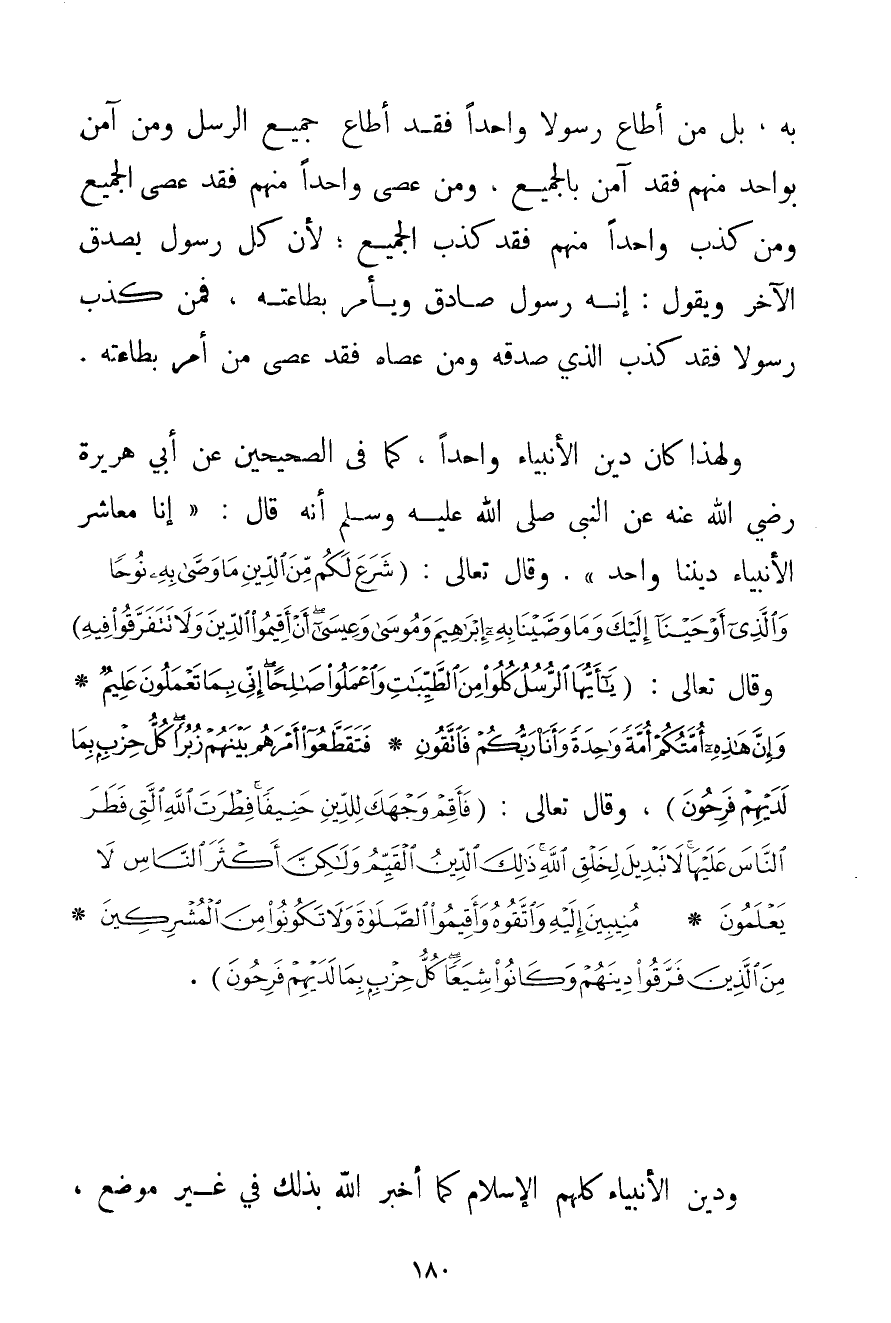 به ، بل من أطاع رسولا واحداً فقد أطاع جميع الرسل ومن آمن
بواحد منهم فقد آمن بالجميع ، ومن عصى واحداً منهم فقد عصى الجميع
ومن كذب واحداً منهم فقد كذب الجميع ؛ لأن كل رسول يصدق
الآخر ويقول : إنه رسول صادق ويأمر بطاعته ، فمن كذب
رسولا فقد كذب الذي صدقه ومن عصاه فقد عصى من أمر بطاعته .
ولهذا كان دين الأنبياء واحداً ، كما فى الصحيحين عن أبي هريرة
رضي الله عنه عن النبى صلى الله عليه وسلم أنه قال : « إنا معاشر
الأنبياء ديننا واحد » . وقال تعالى : (شَرَعَ لَكُم مِّنَ ٱلدِّينِ مَا وَصَّىٰ بِهِۦ نُوحًا
وَٱلَّذِىٓ أَوْحَيْنَآ إِلَيْكَ وَمَا وَصَّيْنَا بِهِۦٓ إِبْرَٰهِيمَ وَمُوسَىٰ وَعِيسَىٰٓ ۖ أَنْ أَقِيمُوا۟ ٱلدِّينَ وَلَا تَتَفَرَّقُوا۟ فِيهِ)
وقال تعالى : (يَٰٓأَيُّهَا ٱلرُّسُلُ كُلُوا۟ مِنَ ٱلطَّيِّبَٰتِ وَٱعْمَلُوا۟ صَٰلِحًا ۖ إِنِّى بِمَا تَعْمَلُونَ عَلِيمٌ *
وَإِنَّ هَٰذِهِۦٓ أُمَّتُكُمْ أُمَّةً وَٰحِدَةً وَأَنَا۠ رَبُّكُمْ فَٱتَّقُونِ * فَتَقَطَّعُوٓا۟ أَمْرَهُم بَيْنَهُمْ زُبُرًا ۖ كُلُّ حِزْبٍۭ بِمَا
لَدَيْهِمْ فَرِحُونَ) ، وقال تعالى : (فَأَقِمْ وَجْهَكَ لِلدِّينِ حَنِيفًا ۚ فِطْرَتَ ٱللَّهِ ٱلَّتِى فَطَرَ
ٱلنَّاسَ عَلَيْهَا ۚ لَا تَبْدِيلَ لِخَلْقِ ٱللَّهِ ۚ ذَٰلِكَ ٱلدِّينُ ٱلْقَيِّمُ وَلَٰكِنَّ أَكْثَرَ ٱلنَّاسِ لَا
يَعْلَمُونَ * مُنِيبِينَ إِلَيْهِ وَٱتَّقُوهُ وَأَقِيمُوا۟ ٱلصَّلَوٰةَ وَلَا تَكُونُوا۟ مِنَ ٱلْمُشْرِكِينَ *
مِنَ ٱلَّذِينَ فَرَّقُوا۟ دِينَهُمْ وَكَانُوا۟ شِيَعًا ۖ كُلُّ حِزْبٍۭ بِمَا لَدَيْهِمْ فَرِحُونَ) .
ودين الأنبياء كلهم الإسلام كما أخبر الله بذلك في غير موضع ،
١٨٠